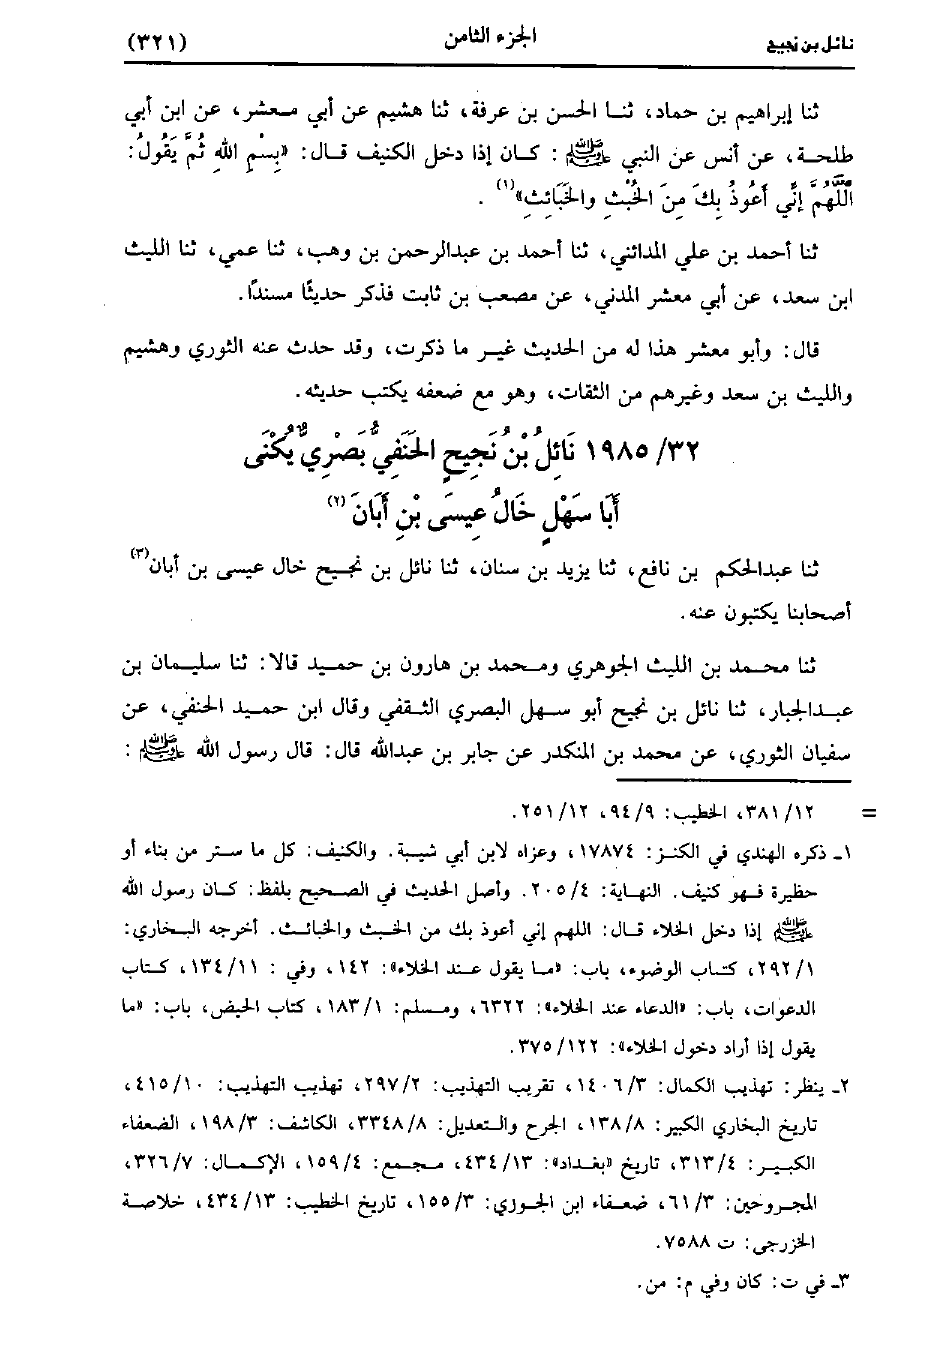 نائل بن نجيح الجزء الثامن (٣٢١)
ثنا إبراهيم بن حماد، ثنا الحسن بن عرفة، ثنا هشيم عن أبي معشر، عن ابن أبي
طلحة، عن أنس عن النبي ﷺ : كان إذا دخل الكنيف قال: «بِسْمِ اللهِ ثُمَّ يَقُولُ:
اللَّهُمَّ إِنِّي أَعُوذُ بِكَ مِنَ الخُبْثِ والخَبَائِثِ»(١) .
ثنا أحمد بن علي المدائني، ثنا أحمد بن عبدالرحمن بن وهب، ثنا عمي، ثنا الليث
ابن سعد، عن أبي معشر المدني، عن مصعب بن ثابت فذكر حديثًا مسندًا.
قال: وأبو معشر هذا له من الحديث غير ما ذكرت، وقد حدث عنه الثوري وهشيم
والليث بن سعد وغيرهم من الثقات، وهو مع ضعفه يكتب حديثه.
٣٢/ ١٩٨٥ نَائِلُ بْنُ نَجِيحٍ الحَنَفِيُّ بَصْرِيٌّ يُكْنَى
أَبَا سَهْلٍ خَالُ عِيسَى بْنِ أَبَانَ(٢)
ثنا عبدالحكم بن نافع، ثنا يزيد بن سنان، ثنا نائل بن نجيح خال عيسى بن أبان(٣)
أصحابنا يكتبون عنه.
ثنا محمد بن الليث الجوهري ومحمد بن هارون بن حميد قالا: ثنا سليمان بن
عبدالجبار، ثنا نائل بن نجيح أبو سهل البصري الثقفي وقال ابن حميد الحنفي، عن
سفيان الثوري، عن محمد بن المنكدر عن جابر بن عبدالله قال: قال رسول الله ﷺ :
= ٣٨١/١٢، الخطيب: ٩٤/٩، ٢٥١/١٢.
١ـ ذكره الهندي في الكنز: ١٧٨٧٤، وعزاه لابن أبي شيبة. والكنيف: كل ما ستر من بناء أو
حظيرة فهو كنيف. النهاية: ٢٠٥/٤. وأصل الحديث في الصحيح بلفظ: كان رسول الله
ﷺ إذا دخل الخلاء قال: اللهم إني أعوذ بك من الخبث والخبائث. أخرجه البخاري:
٢٩٢/١، كتاب الوضوء، باب: «ما يقول عند الخلاء»: ١٤٢، وفي : ١٣٤/١١، كتاب
الدعوات، باب: «الدعاء عند الخلاء»: ٦٣٢٢، ومسلم: ١٨٣/١، كتاب الحيض، باب: «ما
يقول إذا أراد دخول الخلاء»: ٣٧٥/١٢٢.
٢ـ ينظر: تهذيب الكمال: ١٤٠٦/٣، تقريب التهذيب: ٢٩٧/٢، تهذيب التهذيب: ٤١٥/١٠،
تاريخ البخاري الكبير: ١٣٨/٨، الجرح والتعديل: ٣٣٤٨/٨، الكاشف: ١٩٨/٣، الضعفاء
الكبير: ٣١٣/٤، تاريخ «بغداد»: ٤٣٤/١٣، مجمع: ١٥٩/٤، الإكمال: ٣٢٦/٧،
المجروحين: ٦١/٣، ضعفاء ابن الجوري: ١٥٥/٣، تاريخ الخطيب: ٤٣٤/١٣، خلاصة
الخزرجي: ت ٧٥٨٨.
٣ـ في ت: كان وفي م: من.